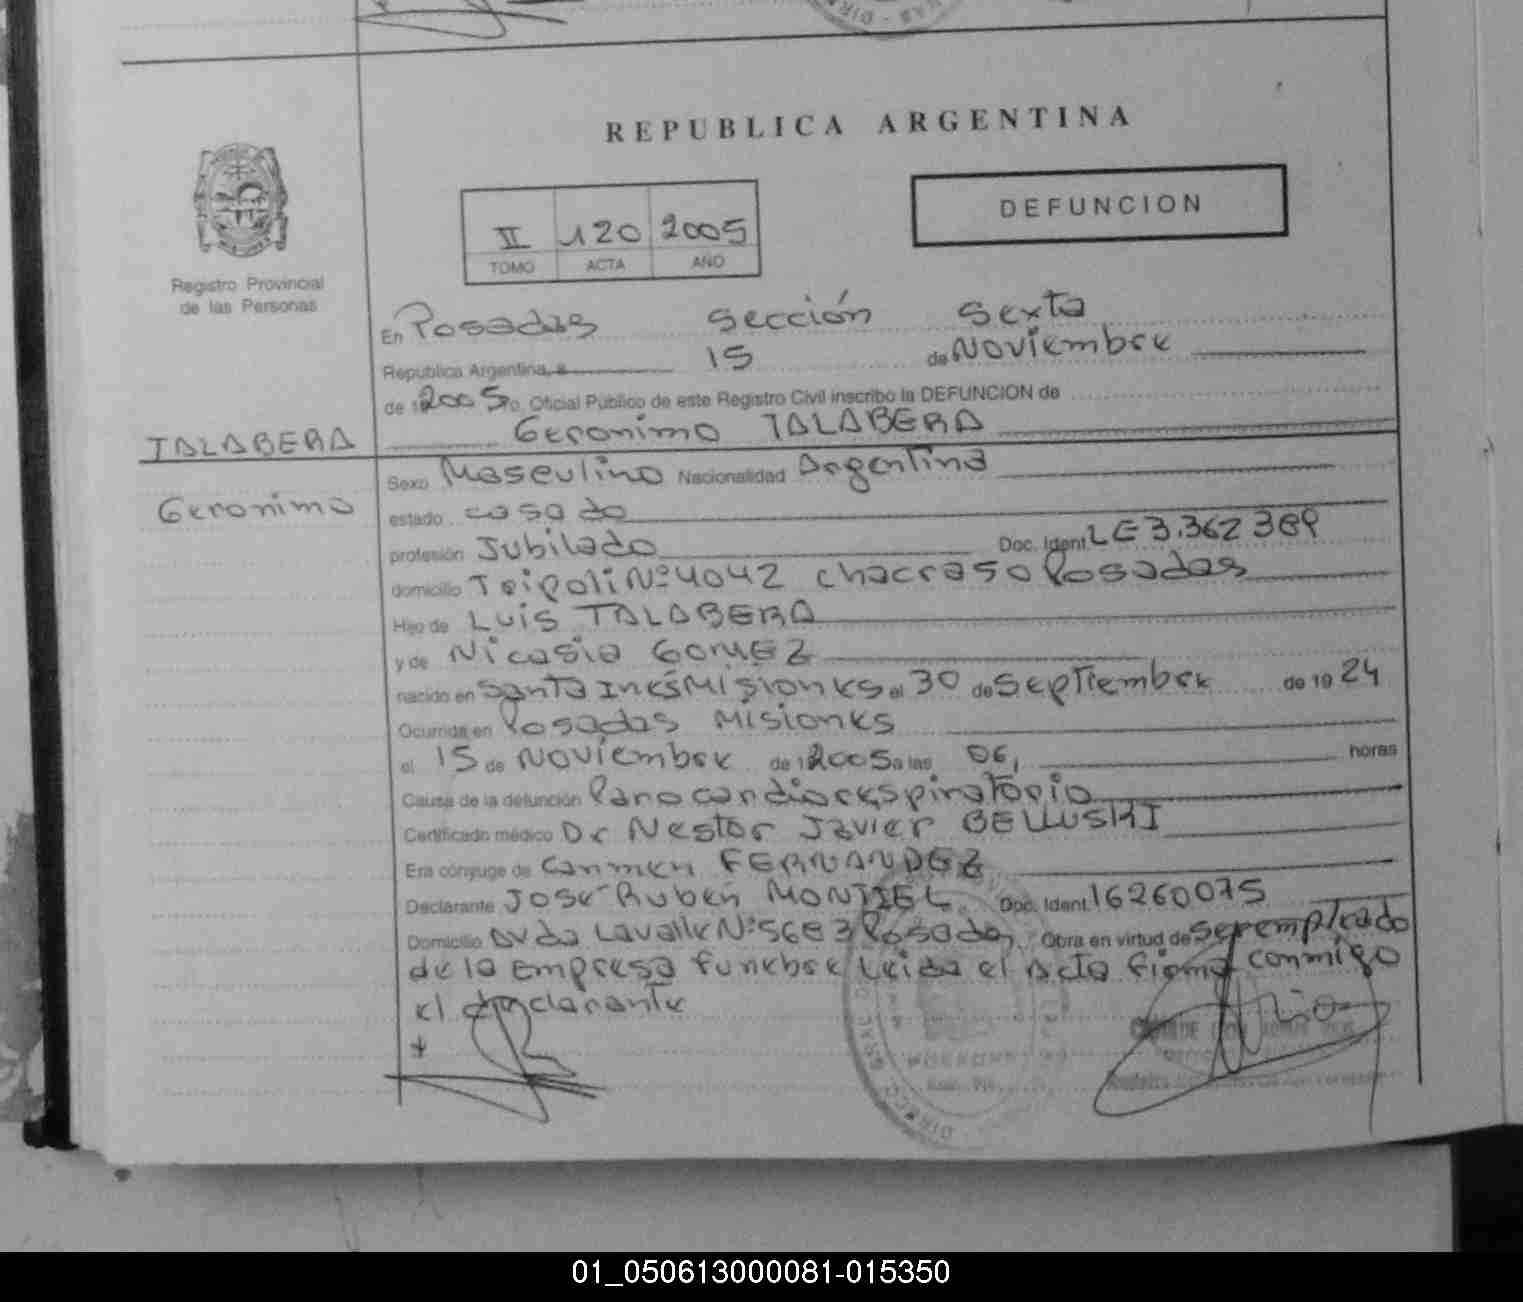 REPUBLICA ARGENTINA
DEFUNCION
II 120 2005
TOMO ACTA AÑO
Registro Provincial
de las Personas
En Posadas sección sexta
Republica Argentina, a 15 de Noviembre
de 12005 Yo. Oficial Público de este Registro Civil inscribo la DEFUNCION de
TALABERA Geronimo TALABERA
Geronimo
Sexo Masculino Nacionalidad Argentina
estado casado
profesión Jubilado Doc. Ident. LE 3.362 389
domicilio Tripoli Nº 4042 chacra 50 Posadas
Hijo de Luis TALABERA
y de Nicasia GOMEZ
nacido en Santa Inés Misiones el 30 de Septiembre de 19 24
Ocurrida en Posadas Misiones
el 15 de Noviembre de 12005 a las 06, horas
Causa de la defunción Paro cardiorespiratorio
Certificado médico Dr Nestor Javier BELLUSKI
Era cónyuge de Carmen FERNANDEZ
Declarante José Ruben MONTIEL Doc. Ident. 16260075
Domicilio Avda Lavalle Nº 5683 Posadas Obra en virtud de ser empleado
de la Empresa funebre Leida el Acta firma conmigo
el declarante
01_050613000081-015350